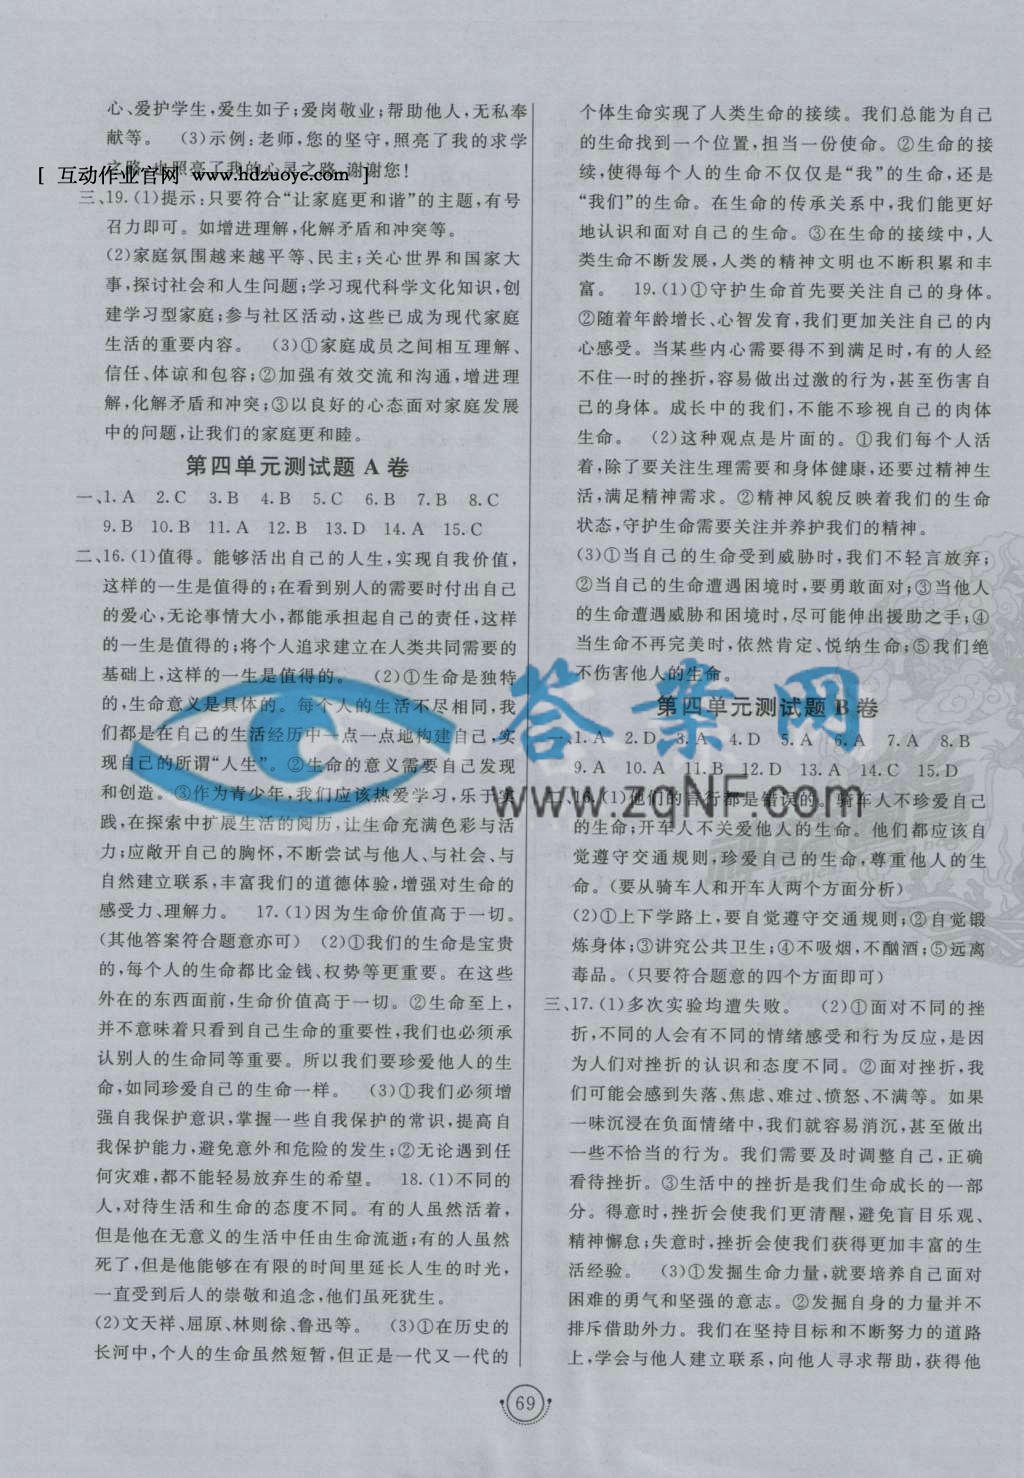 心、爱护学生，爱生如子；爱岗敬业；帮助他人，无私奉
献等。 (3)示例：老师，您的坚守，照亮了我的求学
之路，也照亮了我的心灵之路，谢谢您！
[ 互动作业官网 www.hdzuoye.com ]
三、19.(1)提示：只要符合“让家庭更和谐”的主题，有号
召力即可。如增进理解，化解矛盾和冲突等。
(2)家庭氛围越来越平等、民主；关心世界和国家大
事，探讨社会和人生问题；学习现代科学文化知识，创
建学习型家庭；参与社区活动，这些已成为现代家庭
生活的重要内容。 (3)①家庭成员之间相互理解、
信任、体谅和包容；②加强有效交流和沟通，增进理
解，化解矛盾和冲突；③以良好的心态面对家庭发展
中的问题，让我们的家庭更和睦。
第四单元测试题 A 卷
一、1. A 2. C 3. B 4. B 5. C 6. B 7. B 8. C
9. B 10. B 11. A 12. B 13. D 14. A 15. C
二、16.(1)值得。能够活出自己的人生，实现自我价值，
这样的一生是值得的；在看到别人的需要时付出自己
的爱心，无论事情大小，都能承担起自己的责任，这样
的一生是值得的；将个人追求建立在人类共同需要的
基础上，这样的一生是值得的。 (2)①生命是独特
的，生命意义是具体的。每个人的生活不尽相同，我
们都是在自己的生活经历中一点一点地构建自己，实
现自己的所谓“人生”。②生命的意义需要自己发现
和创造。③作为青少年，我们应该热爱学习，乐于实
践，在探索中扩展生活的阅历，让生命充满色彩与活
力；应敞开自己的胸怀，不断尝试与他人、与社会、与
自然建立联系，丰富我们的道德体验，增强对生命的
感受力、理解力。 17.(1)因为生命价值高于一切。
(其他答案符合题意亦可) (2)①我们的生命是宝贵
的，每个人的生命都比金钱、权势等更重要。在这些
外在的东西面前，生命价值高于一切。②生命至上，
并不意味着只看到自己生命的重要性，我们也必须承
认别人的生命同等重要。所以我们要珍爱他人的生
命，如同珍爱自己的生命一样。 (3)①我们必须增
强自我保护意识，掌握一些自我保护的常识，提高自
我保护能力，避免意外和危险的发生；②无论遇到任
何灾难，都不能轻易放弃生的希望。 18.(1)不同的
人，对待生活和生命的态度不同。有的人虽然活着，
但是他在无意义的生活中任由生命流逝；有的人虽然
死了，但是他能够在有限的时间里延长人生的时光，
一直受到后人的崇敬和追念，他们虽死犹生。
(2)文天祥、屈原、林则徐、鲁迅等。 (3)①在历史的
长河中，个人的生命虽然短暂，但正是一代又一代的
个体生命实现了人类生命的接续。我们总能为自己
的生命找到一个位置，担当一份使命。②生命的接
续，使得每个人的生命不仅仅是“我”的生命，还是
“我们”的生命。在生命的传承关系中，我们能更好
地认识和面对自己的生命。③在生命的接续中，人
类生命不断发展，人类的精神文明也不断积累和丰
富。 19.(1)①守护生命首先要关注自己的身体。
②随着年龄增长、心智发育，我们更加关注自己的内
心感受。当某些内心需要得不到满足时，有的人经
不住一时的挫折，容易做出过激的行为，甚至伤害自
己的身体。成长中的我们，不能不珍视自己的肉体
生命。 (2)这种观点是片面的。①我们每个人活
着，除了需要关注生理需要和身体健康，还要过精神生
活，满足精神需求。②精神风貌反映着我们的生命
状态，守护生命需要关注并养护我们的精神。
(3)①当自己的生命受到威胁时，我们不轻言放弃；
②当自己的生命遭遇困境时，要勇敢面对；③当他人
的生命遭遇威胁和困境时，尽可能伸出援助之手；④
当生命不再完美时，依然肯定、悦纳生命；⑤我们绝
不伤害他人的生命。
第四单元测试题 B 卷
一、1. A 2. D 3. A 4. D 5. A 6. A 7. A 8. B
9. A 10. A 11. B 12. D 13. A 14. C 15. D
二、16.(1)他们的言行都是错误的。骑车人不珍爱自己
的生命；开车人不关爱他人的生命。他们都应该自
觉遵守交通规则，珍爱自己的生命，尊重他人的生
命。(要从骑车人和开车人两个方面分析)
(2)①上下学路上，要自觉遵守交通规则；②自觉锻
炼身体；③讲究公共卫生；④不吸烟，不酗酒；⑤远离
毒品。(只要符合题意的四个方面即可)
三、17.(1)多次实验均遭失败。 (2)①面对不同的挫
折，不同的人会有不同的情绪感受和行为反应，是因
为人们对挫折的认识和态度不同。②面对挫折，我
们可能会感到失落、焦虑、难过、愤怒、不满等。如果
一味沉浸在负面情绪中，我们就容易消沉，甚至做出
一些不恰当的行为。我们需要及时调整自己，正确
看待挫折。③生活中的挫折是我们生命成长的一部
分。得意时，挫折会使我们更清醒，避免盲目乐观、
精神懈怠；失意时，挫折会使我们获得更加丰富的生
活经验。 (3)①发掘生命力量，就要培养自己面对
困难的勇气和坚强的意志。②发掘自身的力量并不
排斥借助外力。我们在坚持目标和不断努力的道路
上，学会与他人建立联系，向他人寻求帮助，获得他
答案网
www.zqNF.com
69